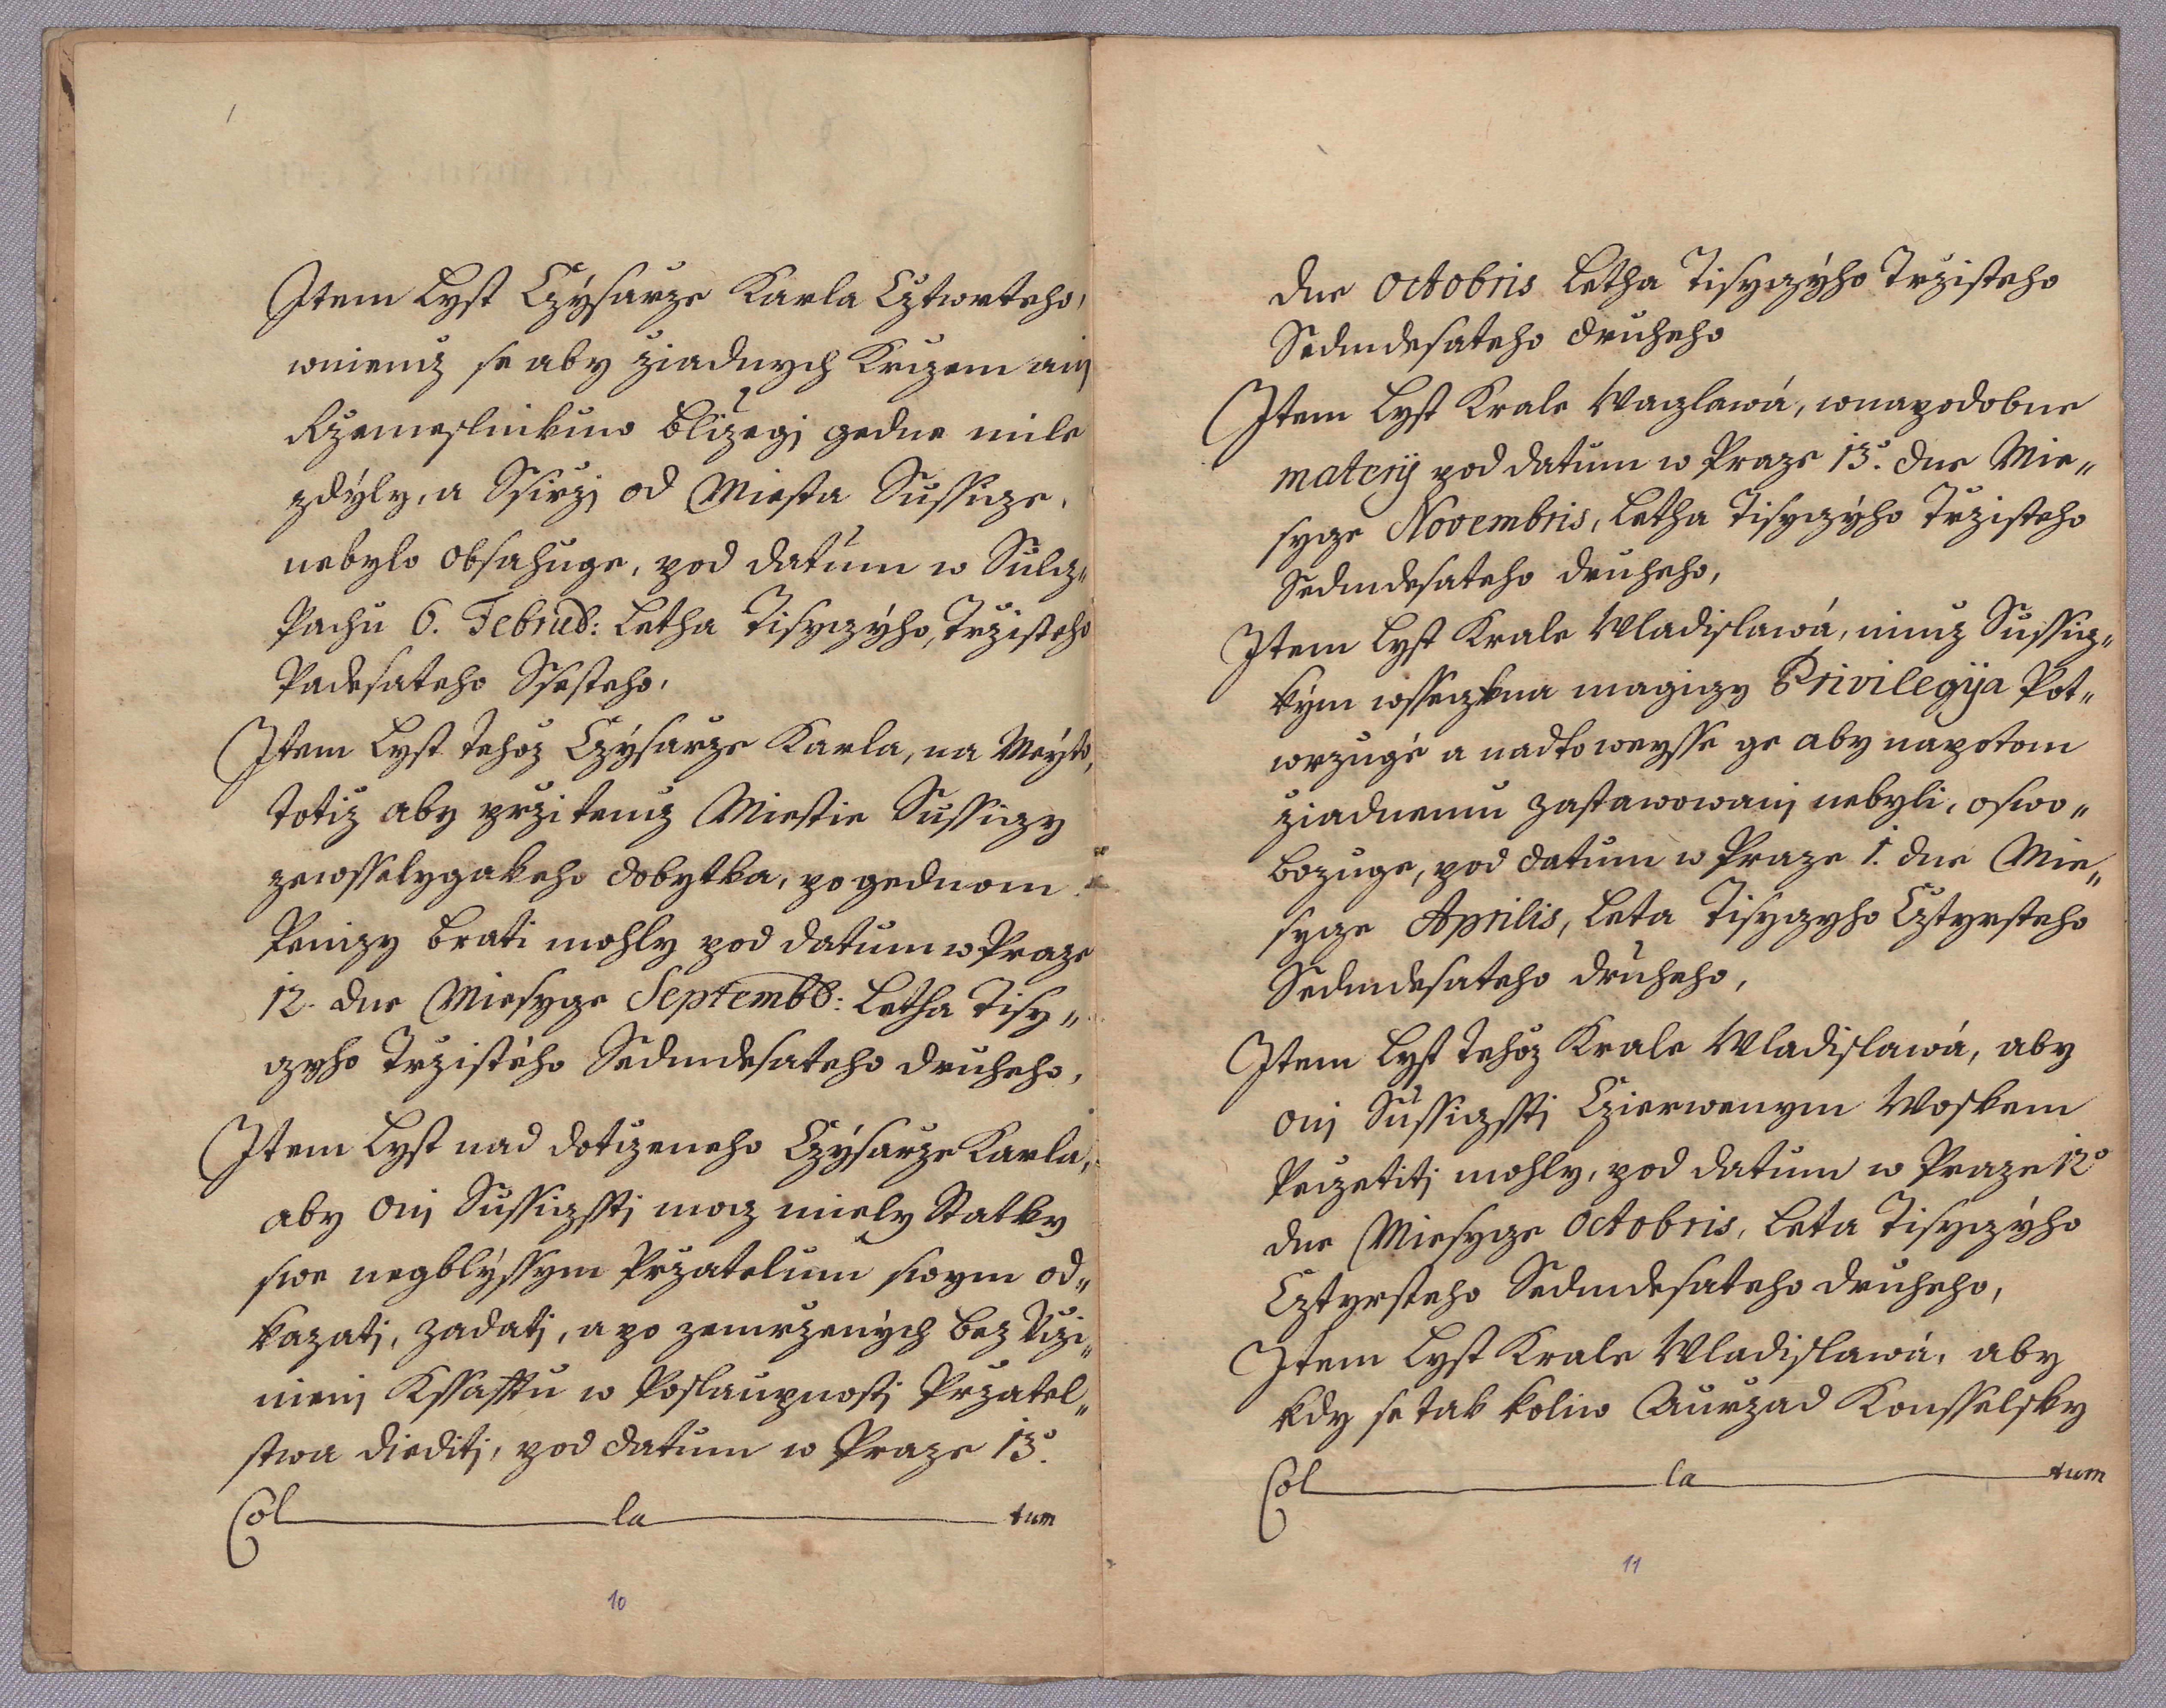 Item Lyst Czysarze Karla Cztwrteho,
wniemz se aby ziadnych Krczem anj
Rzemeslnikuw bližegj gedne mile
zdýly, a Ssirzj od Miesta Sussicze,
nebylo obsahuge, pod datum w Sulcz„
Pachu 6. Februb: Letha Tisyczýho, Trzisteho
Padesateho Ssesteho,
Item Lyst tehoz Czýsarze Karla, na Meýto,
totiz aby przi temz Miestie Sussiczy
zewsselygakeho dobytka, po gednom
Penizy brati mohly pod datum w Praze
12. dne Miesycze Septembb: Letha Tisy„
czyho Trzistého Sedmdesateho druheho,
Item Lyst nad dotczeneho Czýsarze Karla,
aby onj Sussiczsstj mocz miely Statky
swe negblýssym Przatelum swym od„
kazatj, zadatj, a po zemrzenych bez Vczi„
nienj Kssafftu w Poslaupnostj Przatel„
stwa dieditj, pod datum w Praze 13.º
Col la tum
10
dne Octobris Letha Tisyczýho Trzisteho
Sedmdesateho druheho
Item Lyst Krale Waczlawá, wnapodobne
materij pod datum w Praze 13.º dne Mie„
sycze Novembris, Letha Tisyczýho Trzisteho
Sedmdesateho druheho,
Item Lyst Krale Wladislawá, nimz Sussicz„
kým wsseczkna magiczy Privilegija Pot„
wrzugé a nadto weysse ge aby napotom
ziadnemu zastawowanj nebyli, oswo„
bozuge, pod datum w Praze 1. dne Mie„
sycze Aprilis, Leta Tisyczyho Cztyrsteho
Sedmdesateho druheho,
Item Lyst tehoz Krale Wladislawá, aby
onj Sussiczsstj Czierwenym Woskem
Peczetitj mohly, pod datum w Praze 12º
dne Miesycze Octobris, Leta Tisyczýho
Cztyrsteho Sedmdesateho druheho,
Item Lyst Krale Wladislawá, aby
kdy se tak koliw Aurzad Konsselsky
Col la tum
11